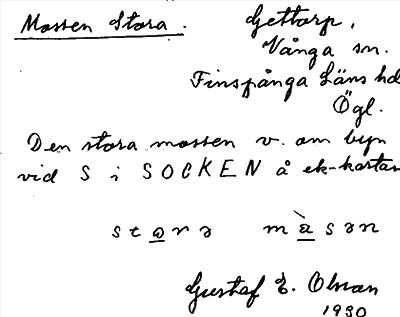 Mossen Stora. Gettorp,
Vånga sn.
Finspånga Läns hd
Ögl.
Den stora mossen v. om byn
vid S i SOCKEN å ek-kartan
stɷra màsən
Gustaf E. Olson
1930